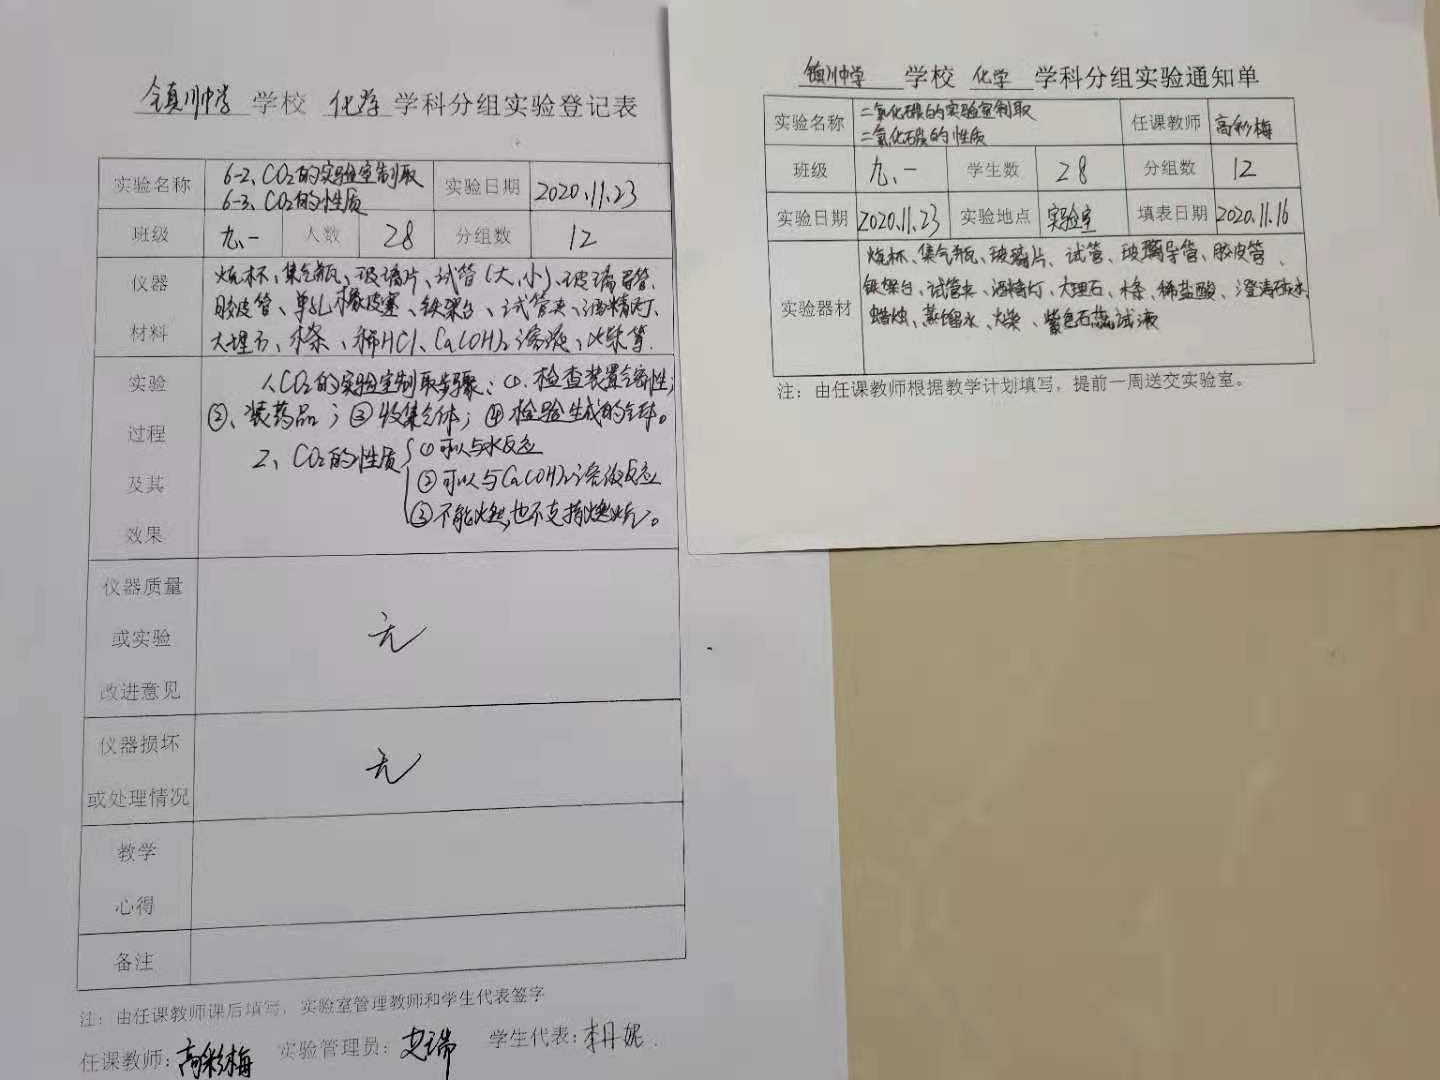 镇川中学 学校 化学 学科分组实验登记表
实验名称 6-2、CO2的实验室制取 实验日期 2020.11.23
6-3、CO2的性质
班级 九.一 人数 28 分组数 12
仪器 烧杯、集气瓶、玻璃片、试管(大、小)、玻璃导管、
胶皮管、单孔橡皮塞、铁架台、试管夹、酒精灯、
材料 大理石、木条、稀HCl、Ca(OH)2溶液、火柴等.
实验 1、CO2的实验室制取步骤：①.检查装置气密性；
②、装药品；③收集气体；④检验生成的气体。
过程
及其
效果
2、CO2的性质 ①可以与水反应
②可以与Ca(OH)2溶液反应
③不能燃烧,也不支持燃烧。
仪器质量
或实验 无
改进意见
仪器损坏 无
或处理情况
教学
心得
备注
注：由任课教师课后填写，实验室管理教师和学生代表签字
任课教师：高彩梅 实验管理员：艾瑞 学生代表：李丹妮
镇川中学 学校 化学 学科分组实验通知单
实验名称 二氧化碳的实验室制取 任课教师 高彩梅
二氧化碳的性质
班级 九.一 学生数 28 分组数 12
实验日期 2020.11.23 实验地点 实验室 填表日期 2020.11.16
实验器材 烧杯、集气瓶、玻璃片、试管、玻璃导管、胶皮管、
铁架台、试管夹、酒精灯、大理石、木条、稀盐酸、澄清石灰水、
蜡烛、蒸馏水、火柴、紫色石蕊试液
注：由任课教师根据教学计划填写，提前一周送交实验室。